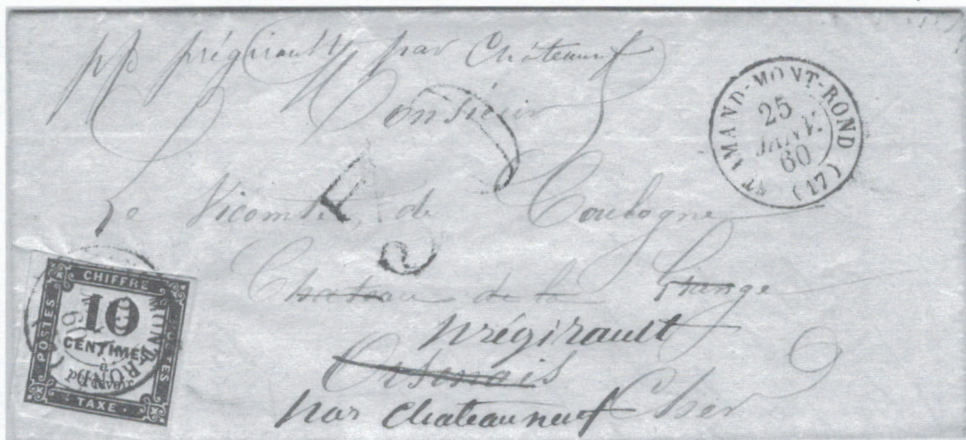 pp prégirault par Châteauneuf
Monsieur
ST AMAND-MONT-ROND (17)
25
JANV.
60
Le Vicomte de Coulogne
Chateau de la Grange
prégirault
Orsenais
par chateauneuf Cher
CHIFFRE
POSTES
10
CENTIMES
à
percevoir
TAXE